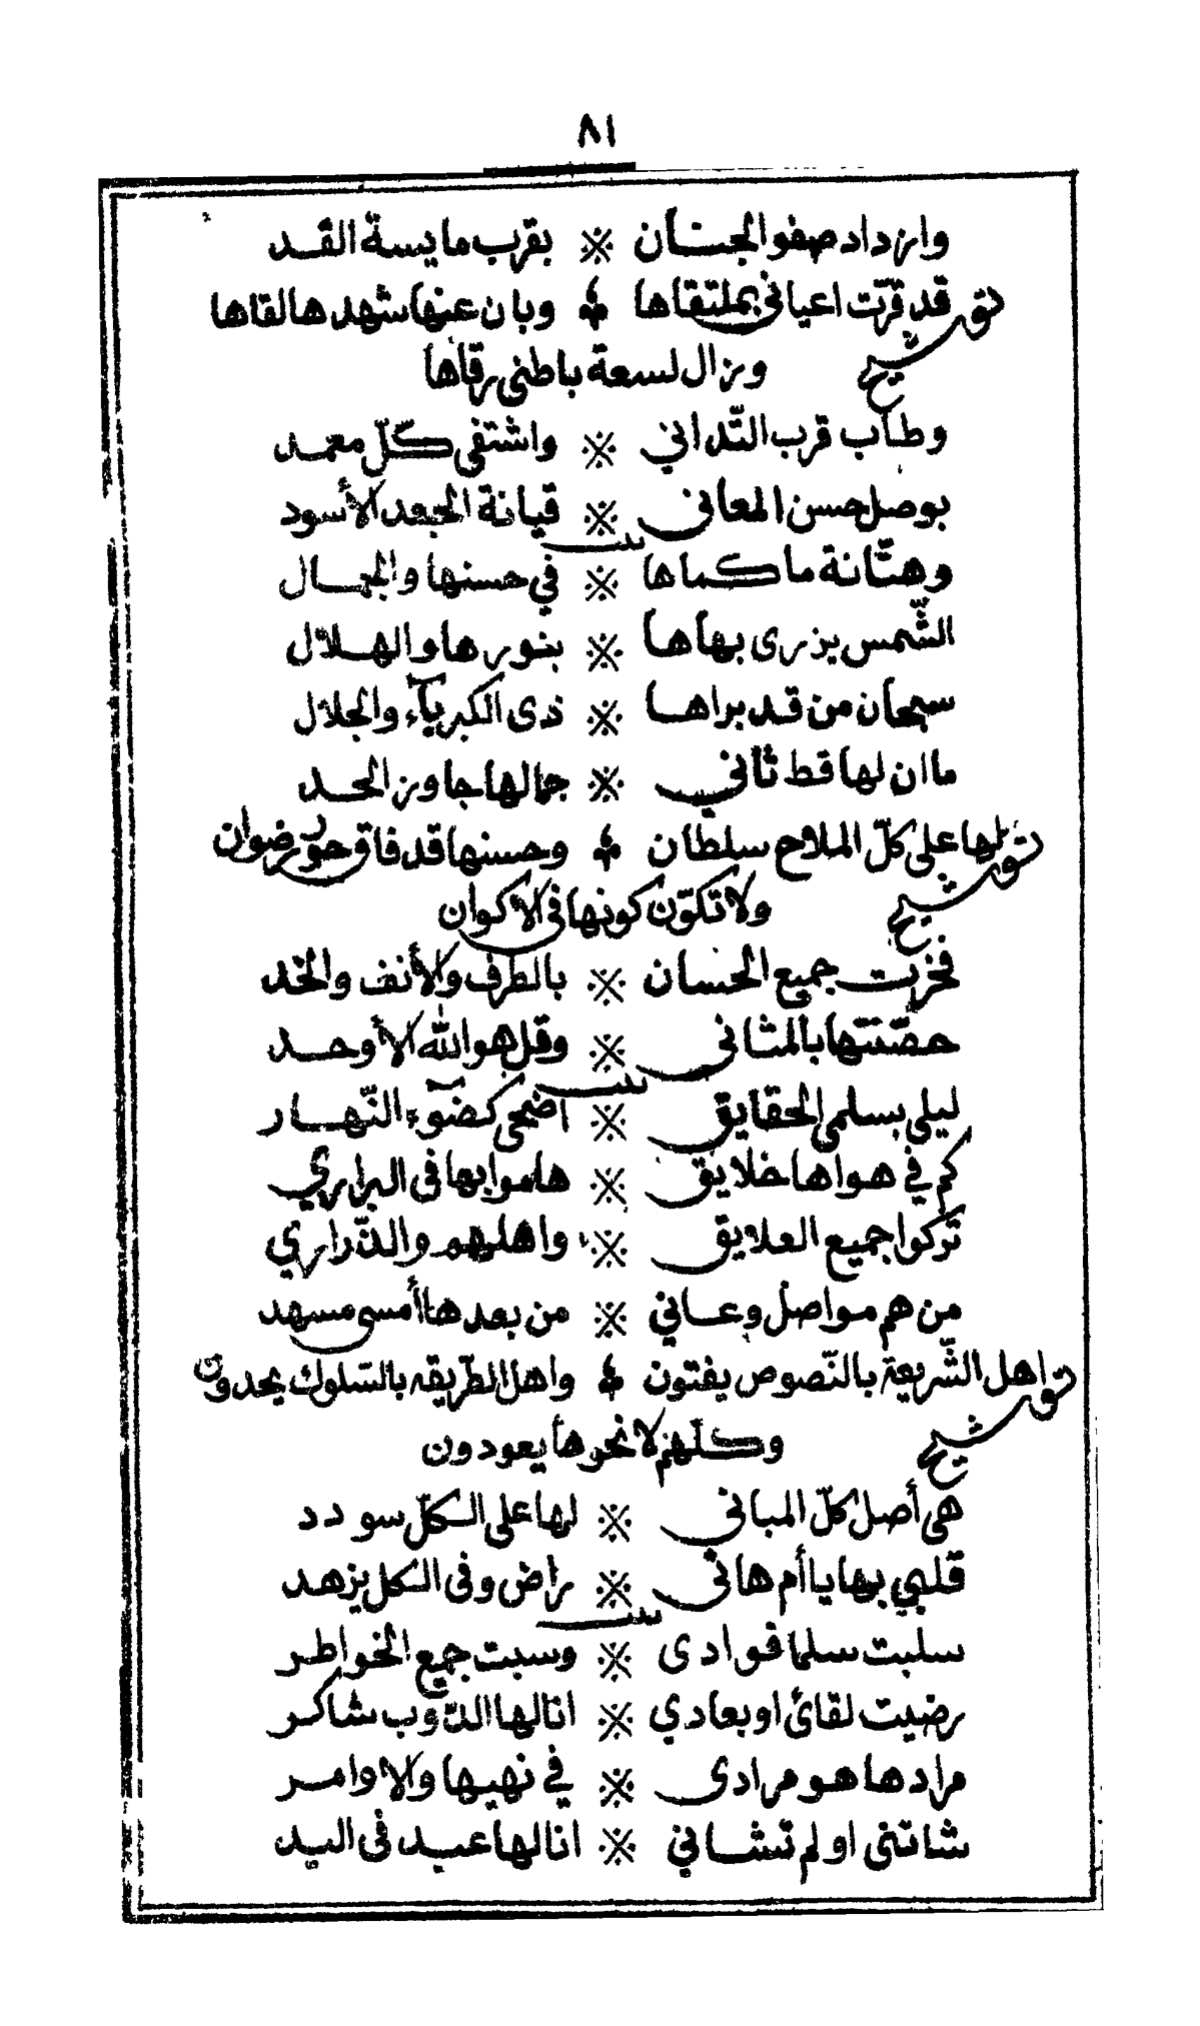 ٨١
وازداد صفو الجنان ※ بقرب مايسة القد
توشيح قد قرّت اعياني بملتقاها ؞ وبان عنها شهدها لقاها
وزال لسعة باطني رقاها
وطاب قرب التّداني ※ واشتفى كلّ معمد
بوصل حسن المعاني ※ قيانة الجعد الأسود
بيت
وهتّانة ما كماها ※ في حسنها والجمال
الشّمس يزرى بهاها ※ بنورها والهلال
سبحان من قد براها ※ ذى الكبريآء والجلال
ما ان لها قط ثاني ※ جمالها جاوز الحد
توشيح لها على كلّ الملاح سلطان ؞ وحسنها قد فاق حور رضوان
ولا تكوّن كونها فى الاكوان
فخرت جميع الحسان ※ بالطرف والأنف والخد
حصّنتها بالمثاني ※ وقل هو الله الأوحد
بيت
ليلى بسلمى الحقايق ※ اضحى كضوء النّهار
كم في هواها خلايق ※ هاموا بها فى البراري
تركوا جميع العلايق ※ واهليهم والذّراري
من هم مواصل وعاني ※ من بعدها أمسى مسهد
توشيح اهل الشّريعة بالنّصوص يفتون ؞ واهل الطّريقه بالسّلوك يحدون
وكلّهم لا نحوها يعودون
هى أصل كلّ المباني ※ لها على الكلّ سودد
قلبي بها يا أم هاني ※ راض وفى الكل يزهد
بيت
سلبت سلما فوادى ※ وسبت جميع الخواطر
رضيت لقائ او بعادي ※ انا لها الدّوب شاكر
مرادها هو مرادى ※ في نهيها والاوامر
شاتني او لم تشاني ※ انا لها عبد فى اليد